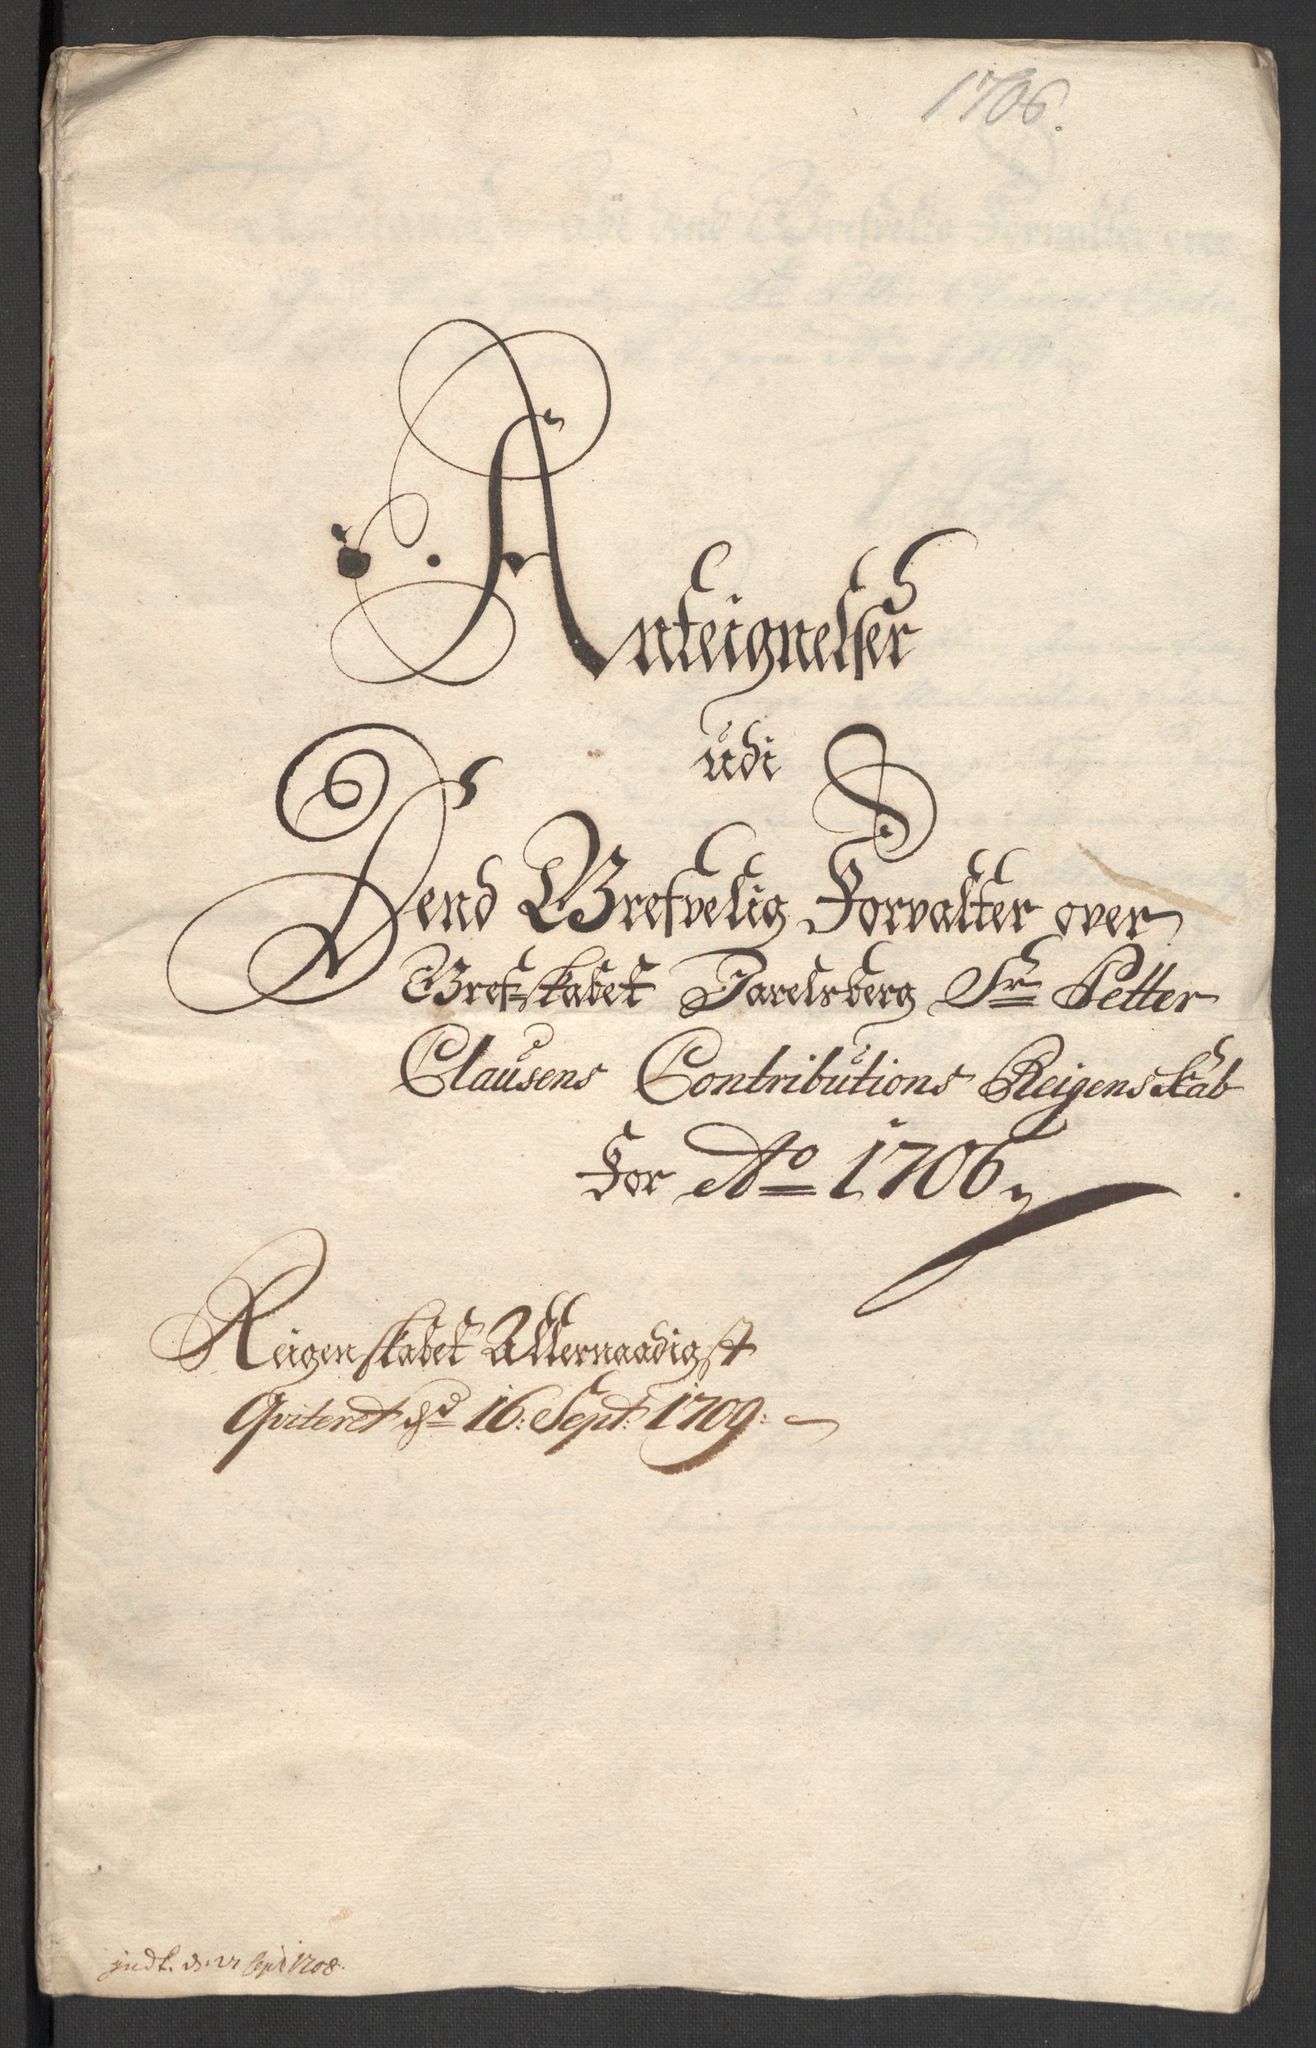 1706.
Anteignelser
udi
Dend Grefvelig Forvalter over
Gref-skabet Jarelsberg Sr Petter
Clausens Contributions Reigenskab
For Ao 1706
Reigenskabet Allernaadigst
Qviteret d 16: Sept: 1709:
indk. d: Sept 1708.